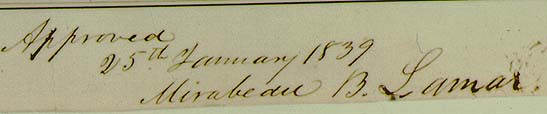 Approved
25th January 1839
Mirabeau B. Lamar